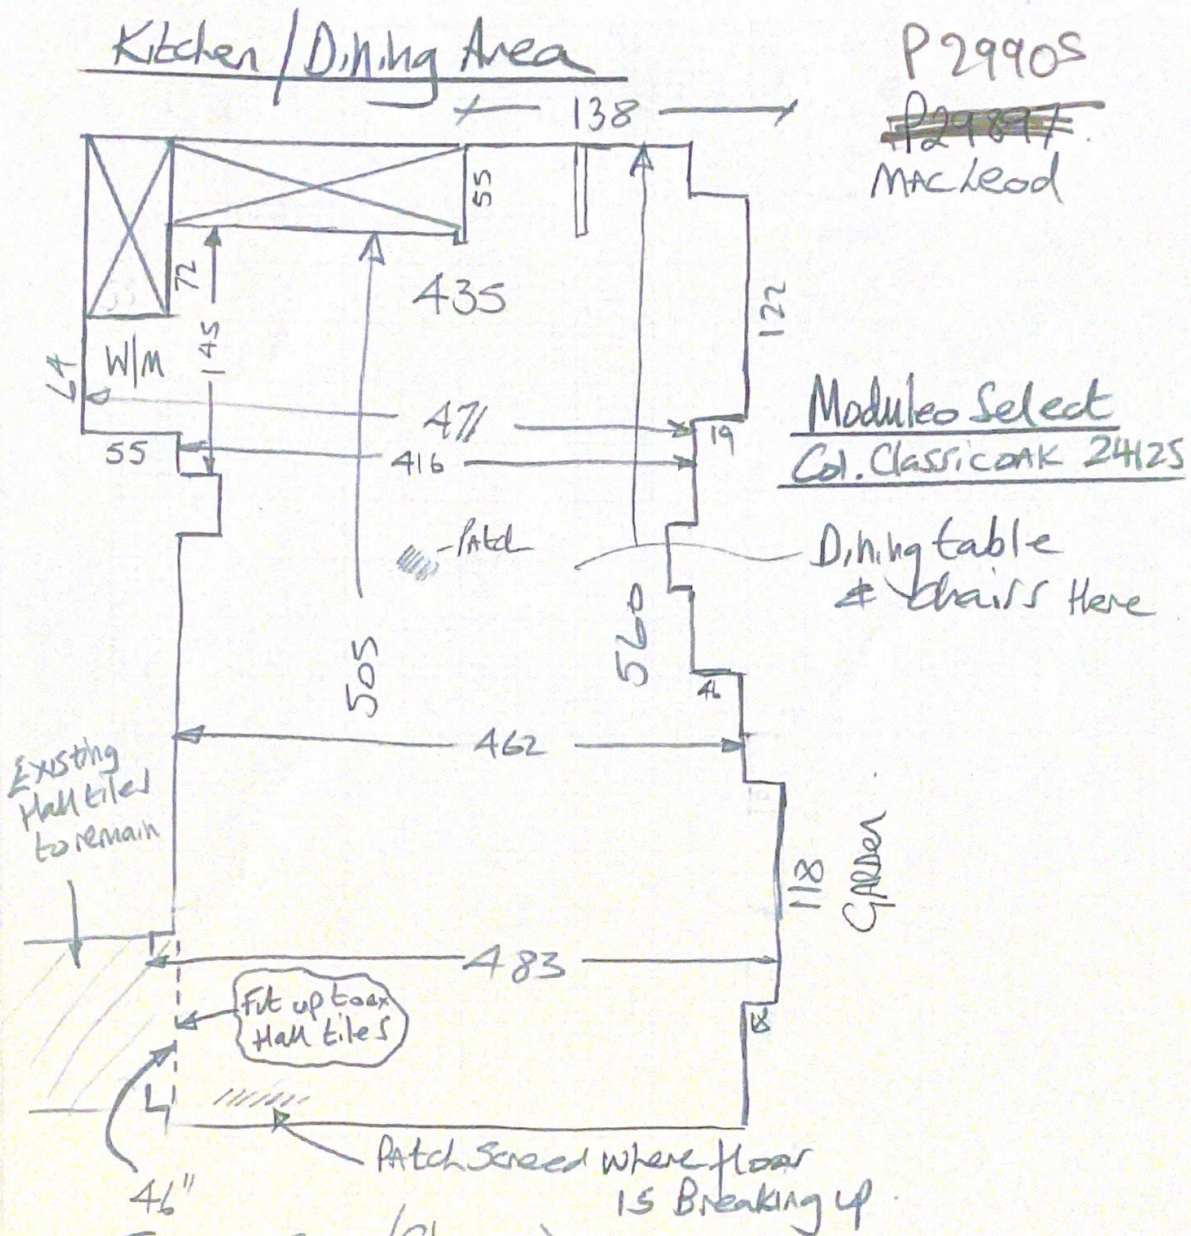 Kitchen / Dining Area
P29905
P29897
MACLeod
138
55
72
145
435
122
W/M
64
471
19
55
416
Moduleo Select
Col. Classic OAK 24125
- Patch
Dining table
& Chairs Here
505
560
46
462
Existing
Hall tiles
to remain
118
GARDEN
483
18
Hall tiles
Patch Screed where floor
is Breaking up.
46"